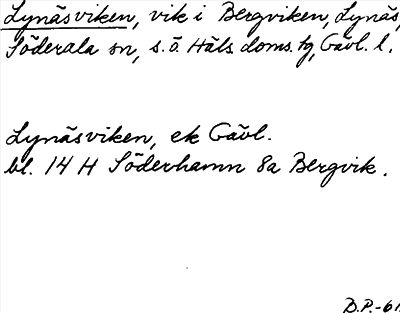 Lynäsviken, vik i Bergviken, Lynäs,
Söderala sn, s.ö. Häls. doms. tg, Gävl. l.
Lynäsviken, ek Gävl.
bl. 14 H Söderhamn 8a Bergvik.
D.P.-61